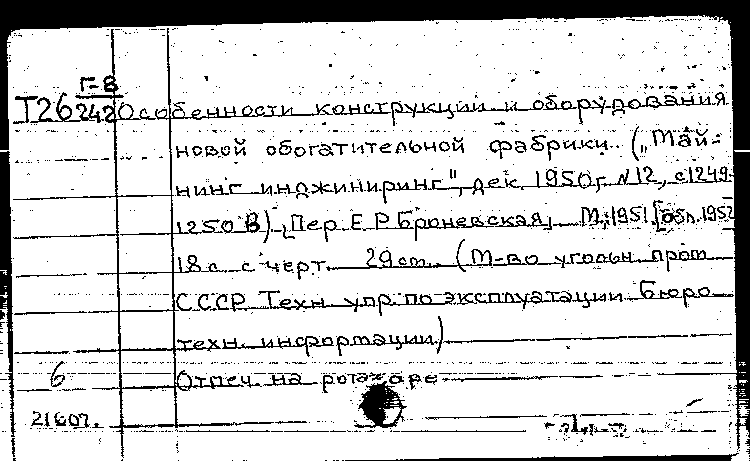 Г-8
Т26 242 Особенности конструкции и оборудования
новой обогатительной фабрики. („Май-
нинг инджиниринг", дек. 1950г. №12, с1249-
1250 В) [Пер. Е.Р. Броневская] М., 1951 [обл. 1952
18 с. с черт. 29 см. (М-во угольн. пром
СССР. Техн. упр. по эксплуатации. Бюро
техн. информации)
6 Отпеч. на ротапаре
21607.